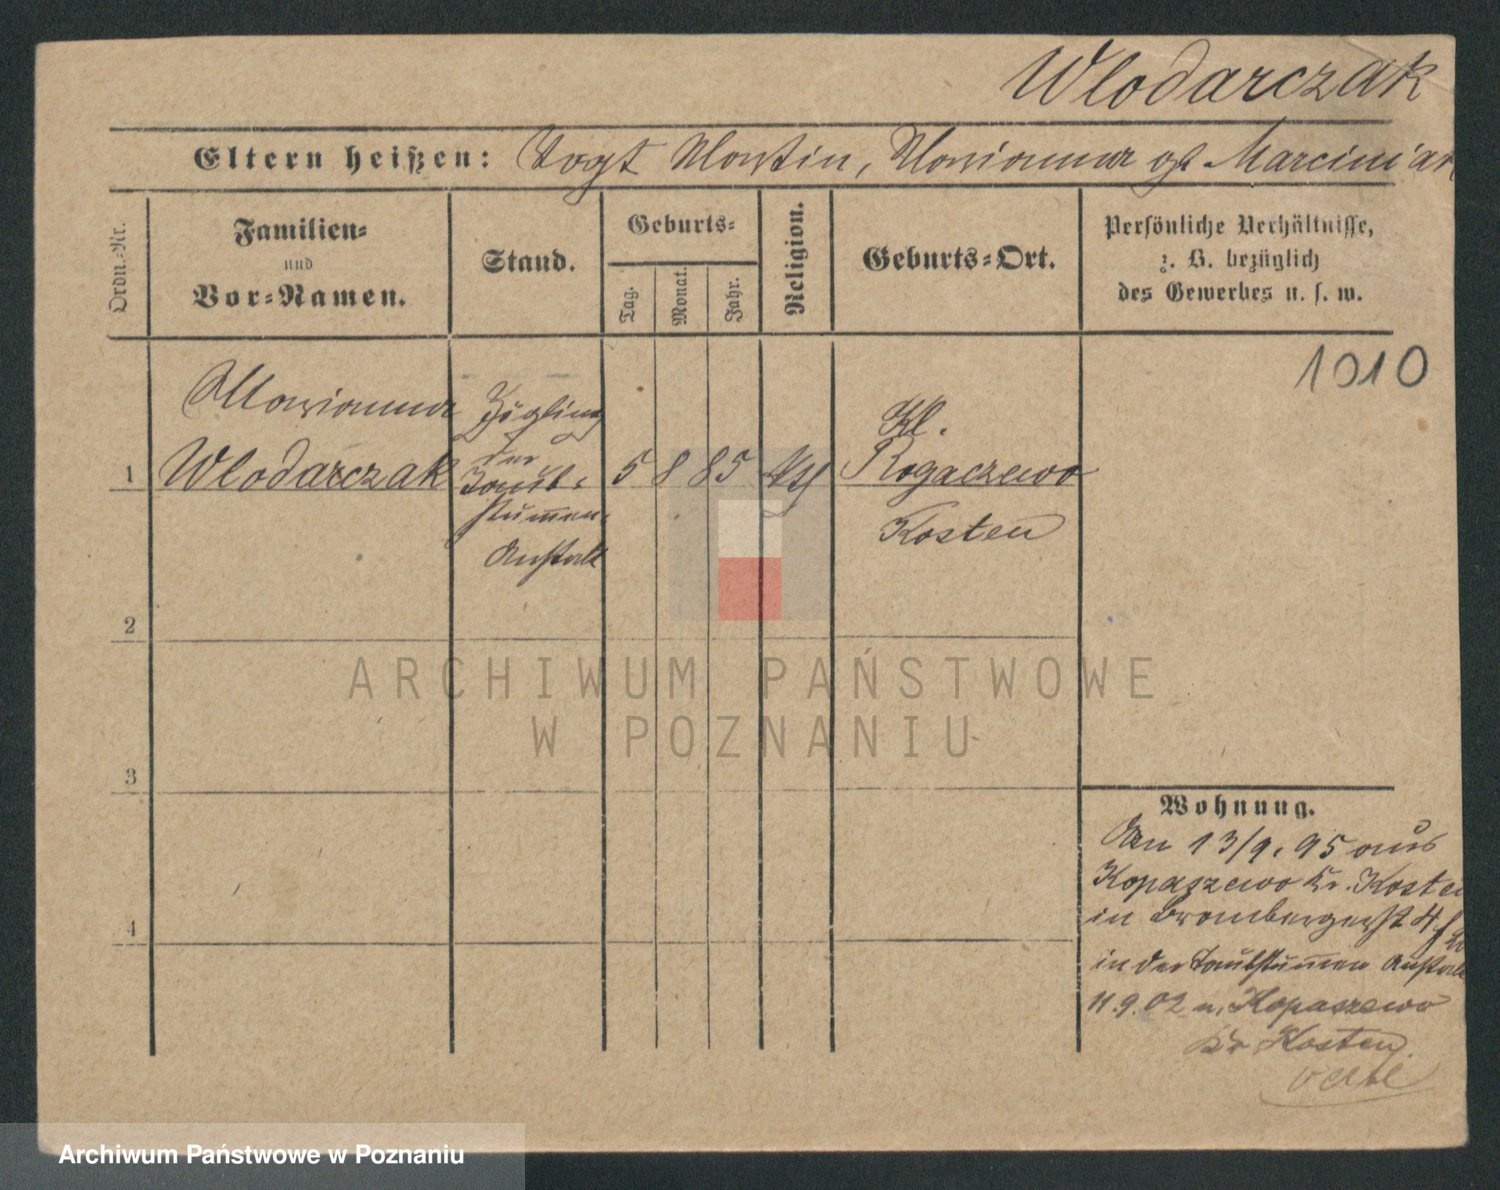 Wlodarczak
Eltern heißen: Vogt Martin, Marianna gb Marciniak
Ordn.-Nr.
Familien-
und
Vor-Namen.
Stand.
Geburts-
Tag.
Monat.
Jahr.
Religion.
Geburts-Ort.
Persönliche Verhältnisse,
z. B. bezüglich
des Gewerbes u. s. w.
1010
Marianna
Wlodarczak
Zögling
der
Taub-
stummen-
Anstalt
1
5 8 85 kth
Kl.
Rogaczewo
Kosten
2
3
4
Wohnung.
Am 13/9. 95 aus
Kopaszewo Kr. Kosten
in Brombergerst 4
in der Taubstummen Anstalt
11.9.02 n. Kopaszewo
Kr Kosten
ARCHIWUM PAŃSTWOWE
W POZNANIU
Archiwum Państwowe w Poznaniu